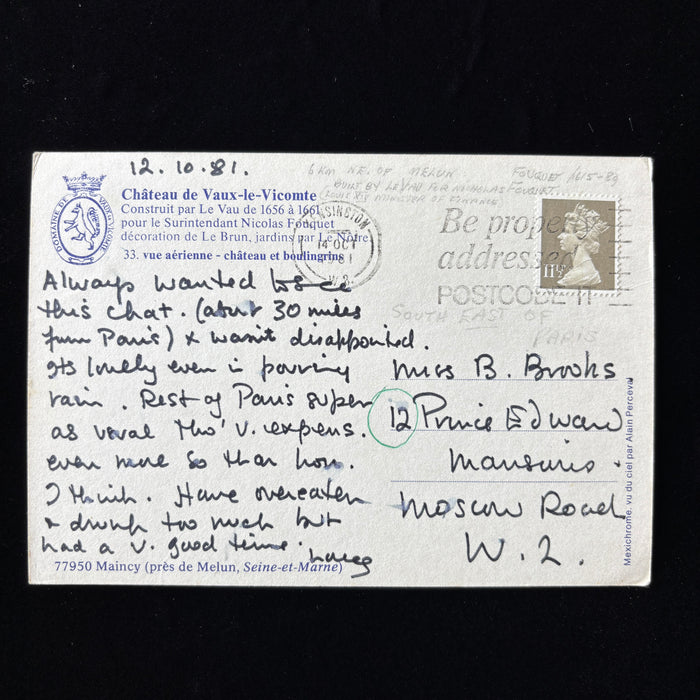 12.10.81.
6 KM NE. OF MELUN
FOUQUET 1615-80
BUILT BY LE VAU FOR NICHOLAS FOUQUET
MINISTER OF FINANCE
DOMAINE DE VAUX-LE-VICOMTE
Château de Vaux-le-Vicomte
Construit par Le Vau de 1656 à 1661
pour le Surintendant Nicolas Fouquet
décoration de Le Brun, jardins par Le Nôtre
33. vue aérienne - château et boulingrins
KENSINGTON
14 OCT
1981
W.8
Be properly
addressed
POSTCODE IT
11½P
Always wanted to see
this chat. (about 30 miles
from Paris) & wasn't disappointed.
Its lovely even in pouring
rain. Rest of Paris super
as usual tho' v. expens.
even more so than hon.
I think. Have overeaten
& drunk too much but
had a v. good time.
SOUTH EAST OF
PARIS
Miss B. Brooks
12 Prince Edward
Mansions.
Moscow Road
W.2.
77950 Maincy (près de Melun, Seine-et-Marne)
Mexichrome, vu du ciel par Alain Perceval